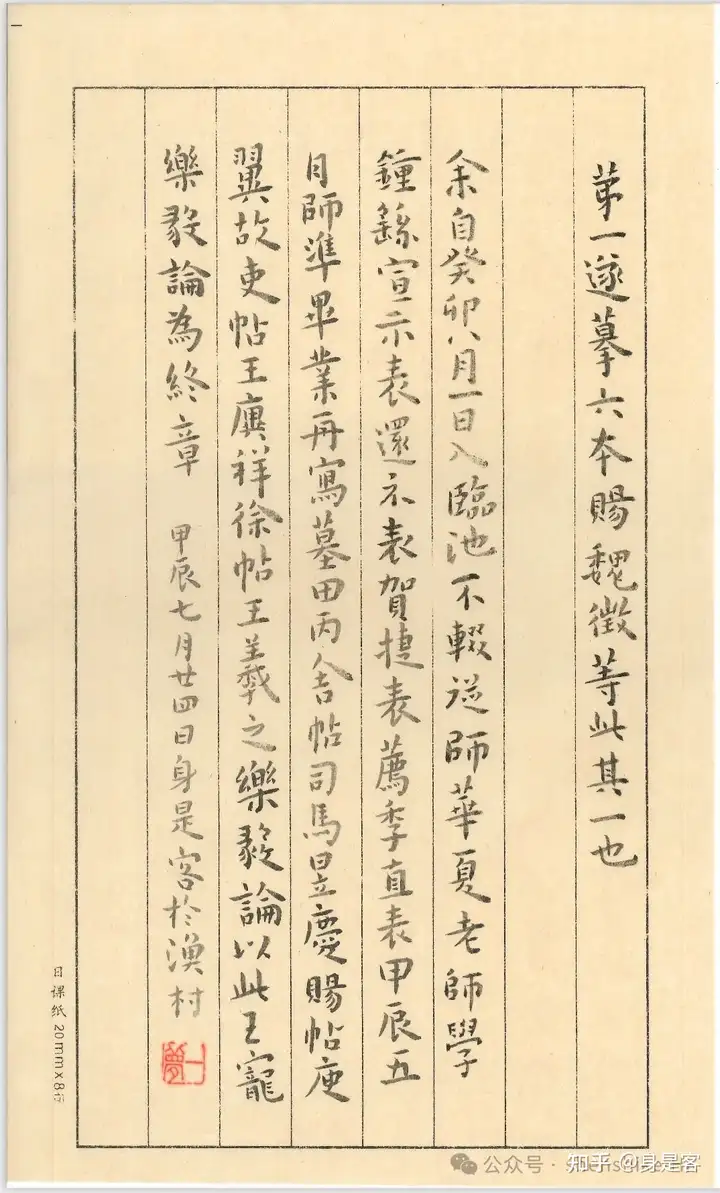 苐一遂摹六本賜魏徵等此其一也
余自癸卯八月一日入臨池不輟從師華夏老師學
鍾繇宣示表還示表賀捷表薦季直表甲辰五
月師準畢業再寫墓田丙舍帖司馬昱慶賜帖庾
翼故吏帖王廙祥徐帖王羲之樂毅論以此王寵
樂毅論為終章 甲辰七月廿四日身是客於漁村
日课纸 20mm×8行
公众号
知乎 @身是客